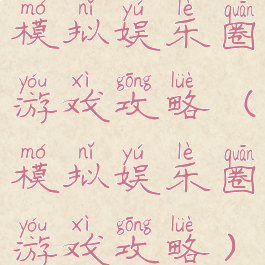 mó nǐ yú lè quān
模拟娱乐圈
yóu xì gōng lüè
游戏攻略（
mó nǐ yú lè quān
模拟娱乐圈
yóu xì gōng lüè
游戏攻略）